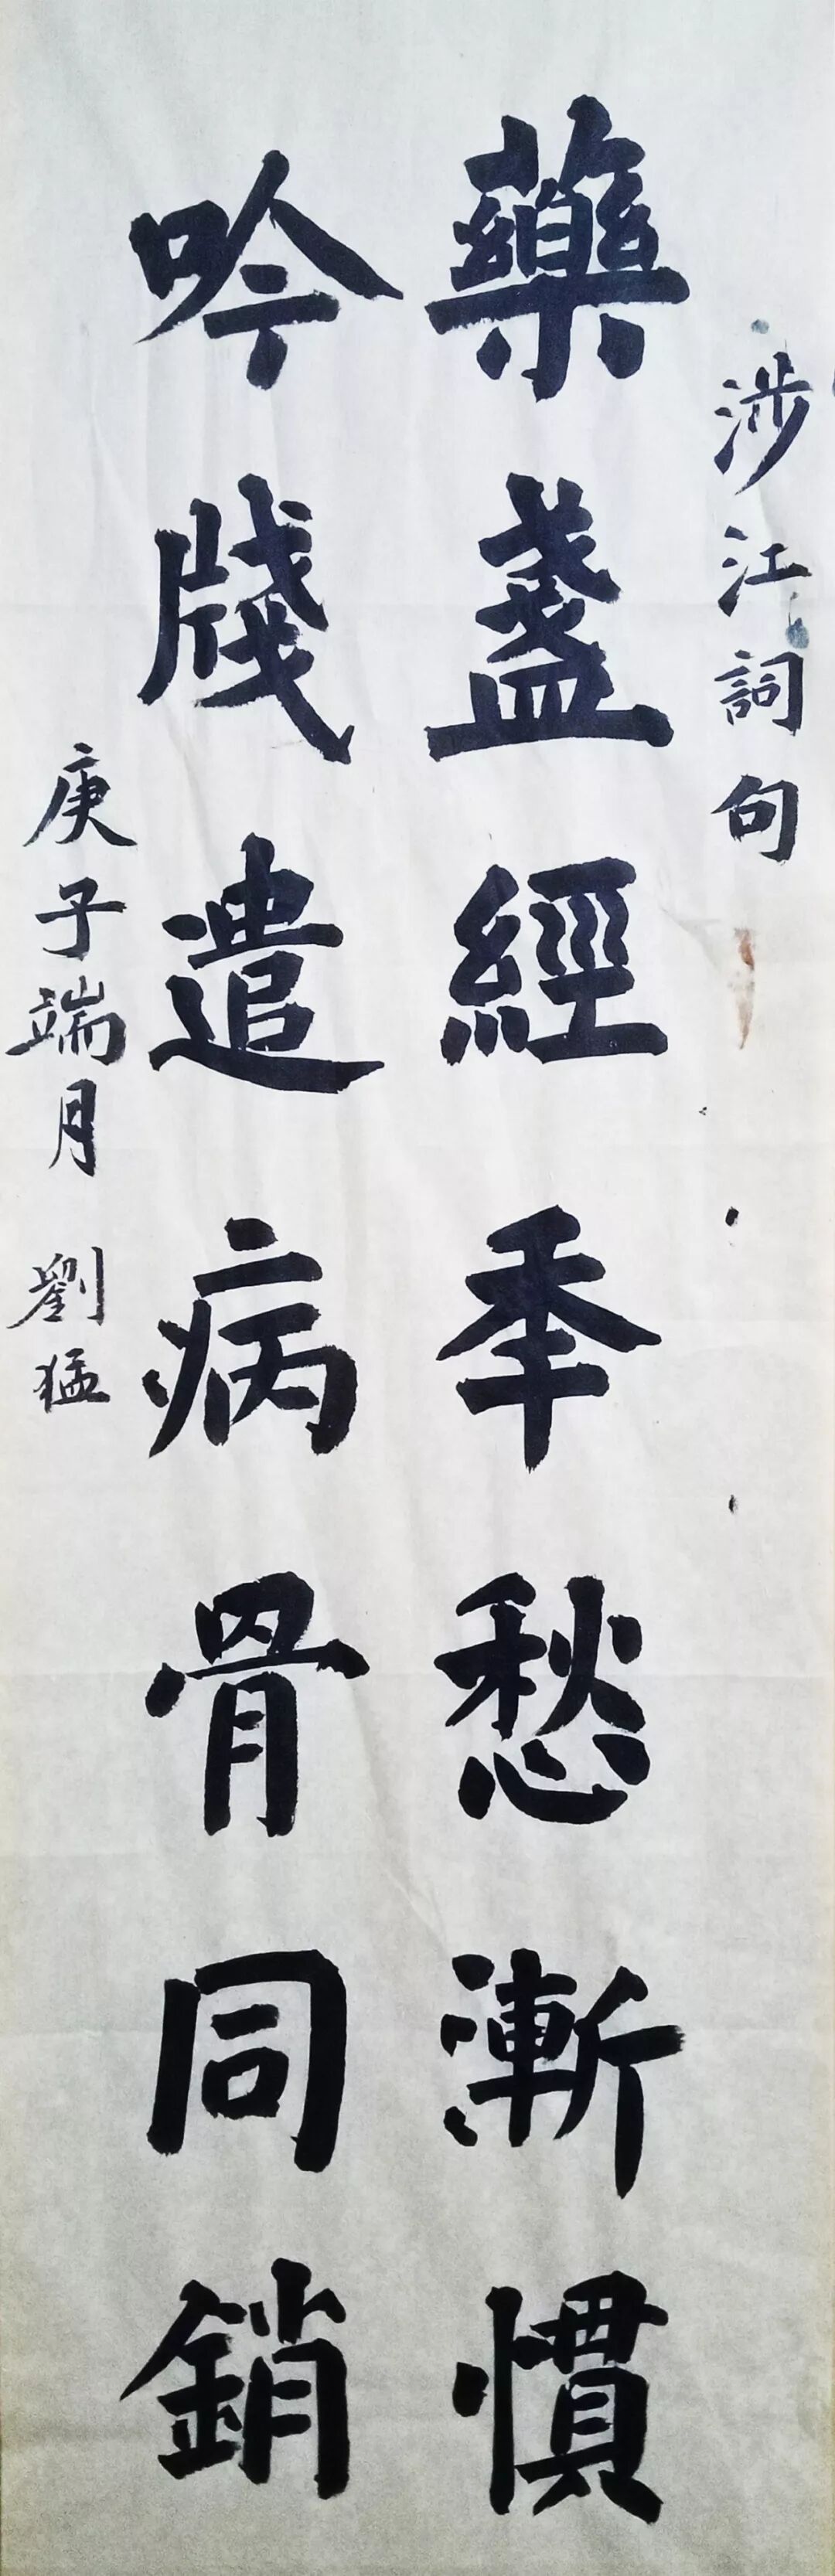 涉江詞句
藥盞經秊愁漸慣
吟牋遣病骨同銷
庚子端月 劉猛